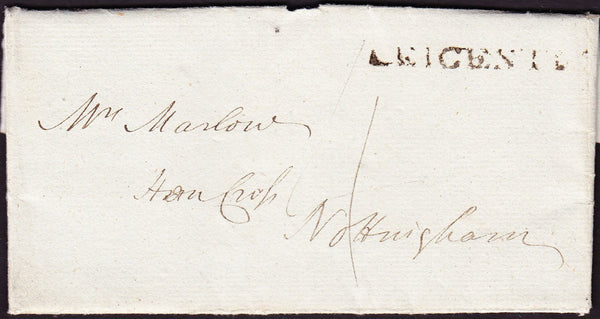 LEICESTE
Mrs Marlow
Hen Cross
Nottingham